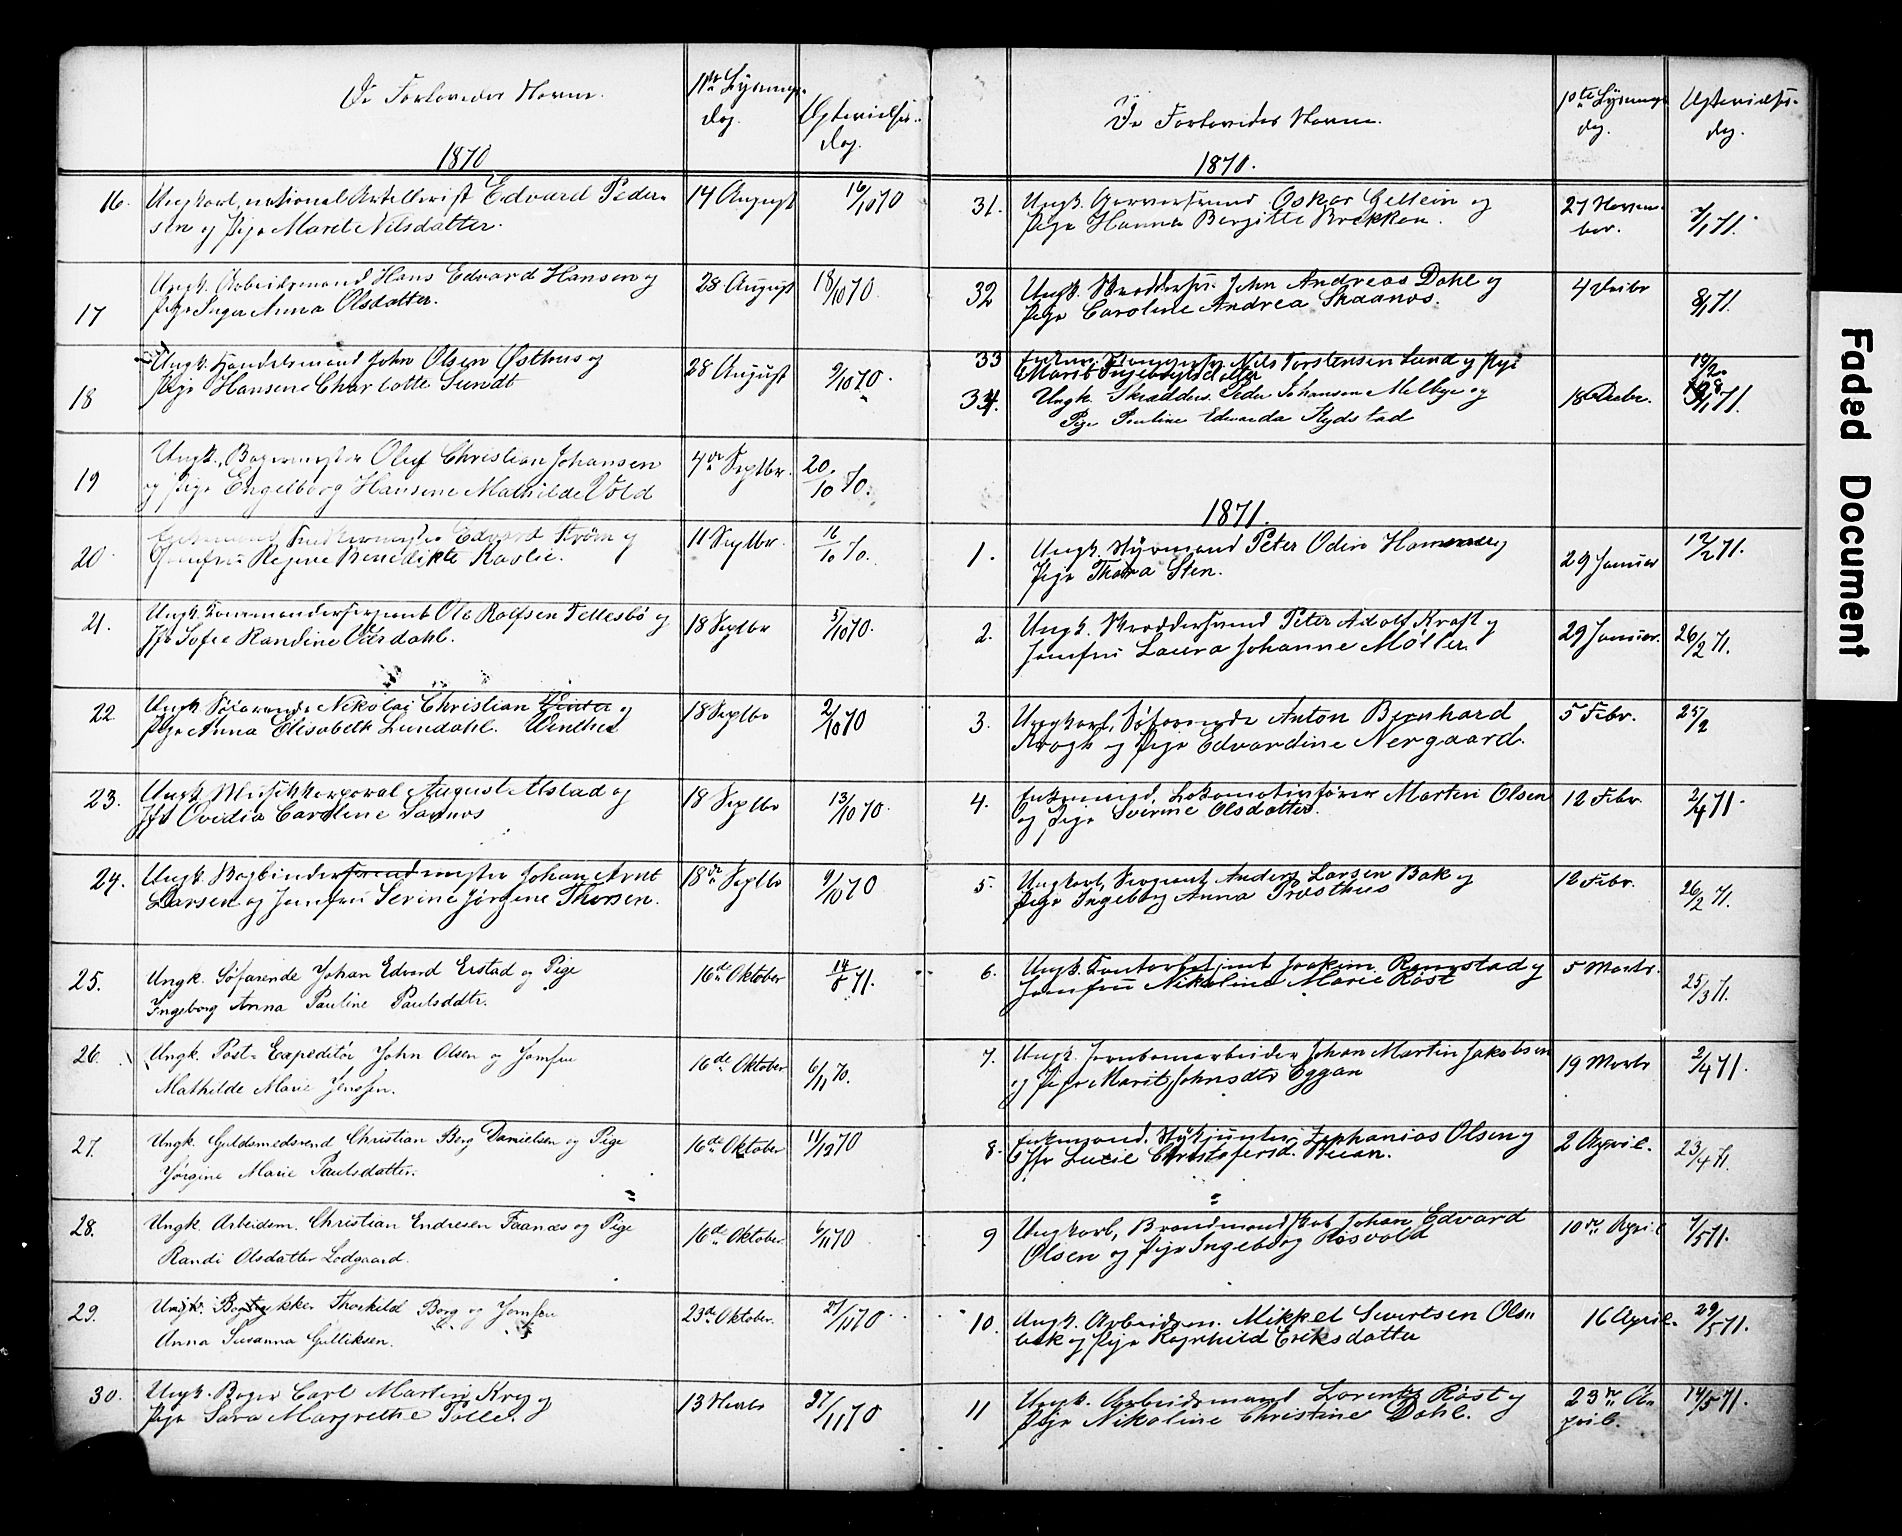 De Forlovedes Navne.
1ste Lysnings-
dag.
Vgtevielses-
dag.
1870
16. Ungkarl, national Artillerist Edvard Peder-
sen og Pige Marit Nilsdatter.
14 August
16/10 70
17 Ungk. Arbeidsmand Hans Edvard Hansen og
Pige Inger Anna Olsdatter.
28. August
18/10 70.
18 Ungk. Handelsmand John Olsen Østhus og
Pige Hansene Charlotte Sundt
28 August
9/10 70.
19 Ungk. Bagermester Oluf Christian Johansen
og Pige Engelborg Hansine Mathilde Vold
4de Septbr.
20/10 70.
20 Enkemand, Snedkermester Edvard Strøm og
Jomfru Regine Benedikte Ravlie.
11 Septbr.
16/10 70.
21. Ungk. Commandersergeant Ole Rolfsen Tellesbø og
Jfr Sofie Randine Værdahl.
18 Septbr
5/10 70.
22 Ungk. Søfarende Nikolai Christian og
Pige Anna Elisabeth Lundahl. Winther
18 Septbr
2/10 70
23. Ungk. Musikkorporal August Alstad og
Jfr Ovidia Caroline Saxnes
18 Septbr
13/10 70.
24. Ungk. Bogbindersvend mester Johan Arnt
Larsen og Jomfru Serine Jørgine Thorsen.
18de Septbr
9/10 70
25. Ungk. Søfarende Johan Edvard Erstad og Pige
Ingeborg Anna Pauline Paulsdatr.
16de Oktober
14/8 71.
26. Ungk. Post-Expeditør John Olsen og Jomfru
Mathilde Marie Jenssen.
16de Oktober
6/11 70.
27. Ungk. Guldsmedsvend Christian Berg Danielsen og Pige
Jørgine Marie Paulsdatter.
16de Oktober
11/12 70
28. Ungk. Arbeidsm. Christian Endresen Faanæs og Pige
Randi Olsdatter Lodgaard.
16de Oktober
6/11 70
29. Ungk. Bogtrykker Thorkild Borg og Jomfru
Anna Susanna Gulliksen.
23de Oktober.
27/11 70.
30. Ungk. Bager Carl Martin Krey og
Pige Sara Margrethe Tølle.
13 Novbr
27/11 70
De Forlovedes Navne.
1ste Lysnings
dag.
Vgtevielses-
dag.
1870.
31. Ungk. Garversvend Oskar Gellein og
Pige Hanna Bergitte Brekken.
27 Novem-
ber.
7/1 71.
32 Ungk. Skræddersv. John Andreas Dahl og
Pige Caroline Andrea Skaanes.
4 Decbr
8/1 71.
33 Enkem. Nils Torstensen Lund og Pige
Marit Ingebrigtsdatter
19/2
34. Ungk. Skrædders. Peder Johansen Melbye og
Pige Pauline Edvarda Rydstad
18 Decbr.
71.
1871.
1. Ungk. Styrmand Peter Odin Hammer og
Pige Thora Sten.
29 Januar
12/2 71.
2. Ungk. Skræddersvend Peter Adolf Kraft og
Jomfru Laura Johanne Møller.
29 Januar.
26/2 71.
3. Ungkarl, Søfarende Anton Bernhard
Krogh og Pige Edvardine Nergaard.
5 Febr.
25/2
4. Enkemand, Lokomotivfører Martin Olsen
og Pige Sverine Olsdatter.
12 Febr
2/4 71.
5. Ungkarl, Sergeant Anders Larsen Bak og
Pige Ingeborg Anna Præsthus
12 Febr.
26/2 71.
6. Ungk. Contorbetjent Joakim Remstad og
Jomfru Nikoline Marie Røst
5 Marts.
25/3 71.
7. Ungk. Jernbanearbeider Johan Martin Jakobsen
og Pige Marit Johnsdtr Eggan
19 Marts
2/4 71.
8. Enkemand, Zephanias Olsen og
Jfr Lucie Christofersd. Reian.
2 April.
23/4 71.
9 Ungkarl, Brandmand Jhob Johan Edvard
Olsen og Pige Ingeborg Røsvold
10de April
7/5 71.
10. Ungk. Arbeidsm. Mikkel Sivertsen Ols-
bak og Pige Ragnhild Eriksdatter
16 April.
29/5 71.
11 Ungk. Arbeidsmand Lorentz Røst og
Pige Nikoline Christine Dahl.
23de A-
pril.
14/5 71.
Faded Document